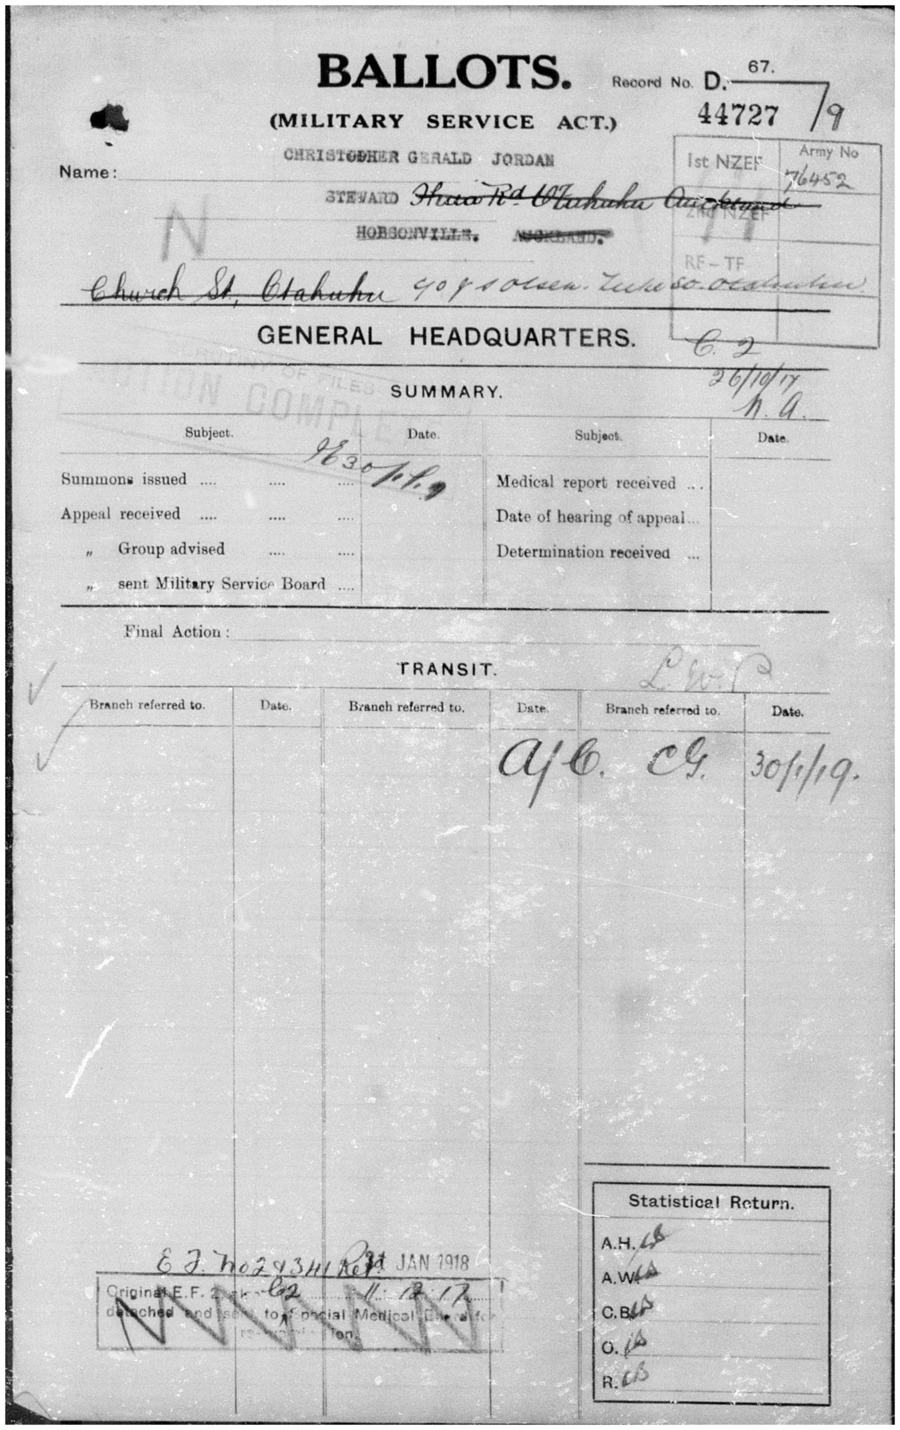 BALLOTS.
Record No. D. 67.
44727 /9
(MILITARY SERVICE ACT.)
CHRISTOPHER GERALD JORDAN
Name:
1st NZEF
Army No
76452
STEWARD Rd Otahuhu Auckland
2nd NZEF
N
HOBSONVILLE. AUCKLAND.
RF-TF
Church St, Otahuhu
GENERAL HEADQUARTERS.
C. 2
26/10/17
N. A.
SCRUTINY OF FILES
ACTION COMPLETED
SUMMARY.
Subject. Date. Subject. Date.
Summons issued .... .... .... Medical report received ...
Appeal received .... .... .... Date of hearing of appeal ...
„ Group advised .... .... Determination received ...
„ sent Military Service Board ....
Final Action :
TRANSIT.
Branch referred to. Date. Branch referred to. Date. Branch referred to. Date.
A/C. CG. 30/1/19.
Statistical Return.
A.H. CB
A.W. CB
C.B. CB
O. CB
R. CB
E.F. No 2 JAN 1918
Original E.F. 2 C2 11 12 17
detached and sent to Special Medical Board for